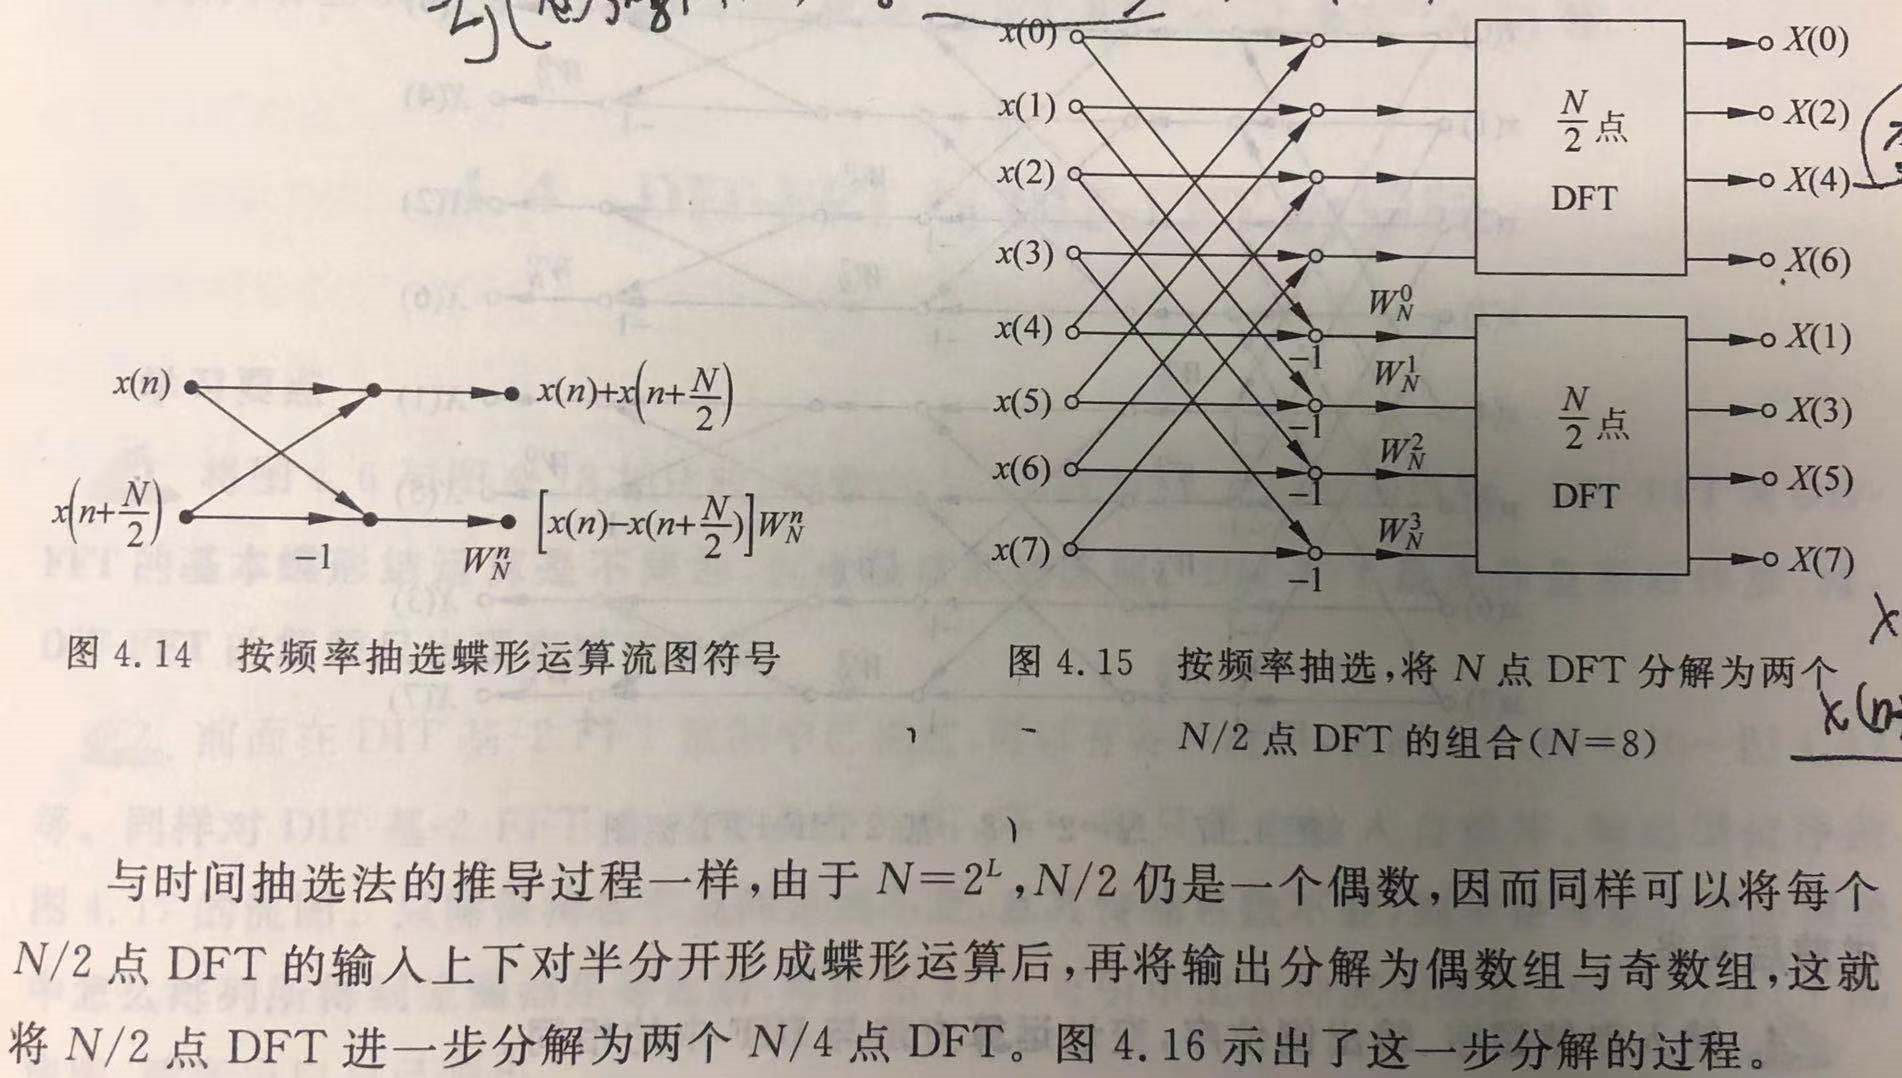 x(0) X(0)
x(1) N/2 点 X(2)
x(2) DFT X(4)
x(3) X(6)
x(4) W_N^0 -1 X(1)
x(5) W_N^1 -1 N/2 点 X(3)
x(6) W_N^2 -1 DFT X(5)
x(7) W_N^3 -1 X(7)
x(n) x(n)+x(n+N/2)
x(n+N/2) -1 W_N^n [x(n)-x(n+N/2)]W_N^n
图 4.14 按频率抽选蝶形运算流图符号
图 4.15 按频率抽选,将 N 点 DFT 分解为两个
N/2 点 DFT 的组合(N=8)
与时间抽选法的推导过程一样,由于 N=2^L,N/2 仍是一个偶数,因而同样可以将每个
N/2 点 DFT 的输入上下对半分开形成蝶形运算后,再将输出分解为偶数组与奇数组,这就
将 N/2 点 DFT 进一步分解为两个 N/4 点 DFT。图 4.16 示出了这一步分解的过程。